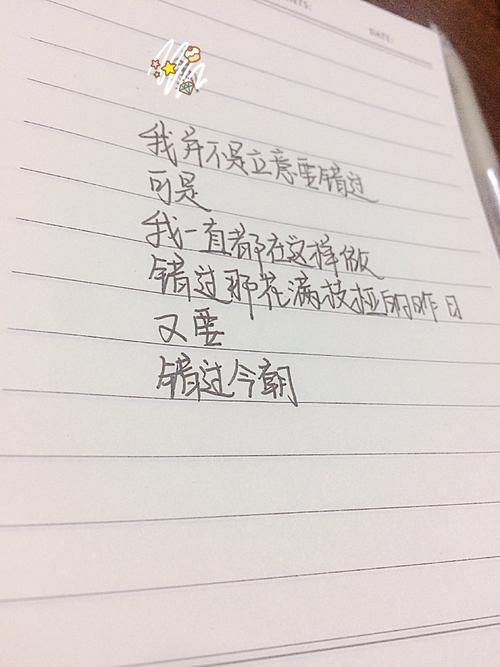 DATE:
我并不是立意要错过
可是
我一直都在这样做
错过那花满枝桠的昨日
又要
错过今朝